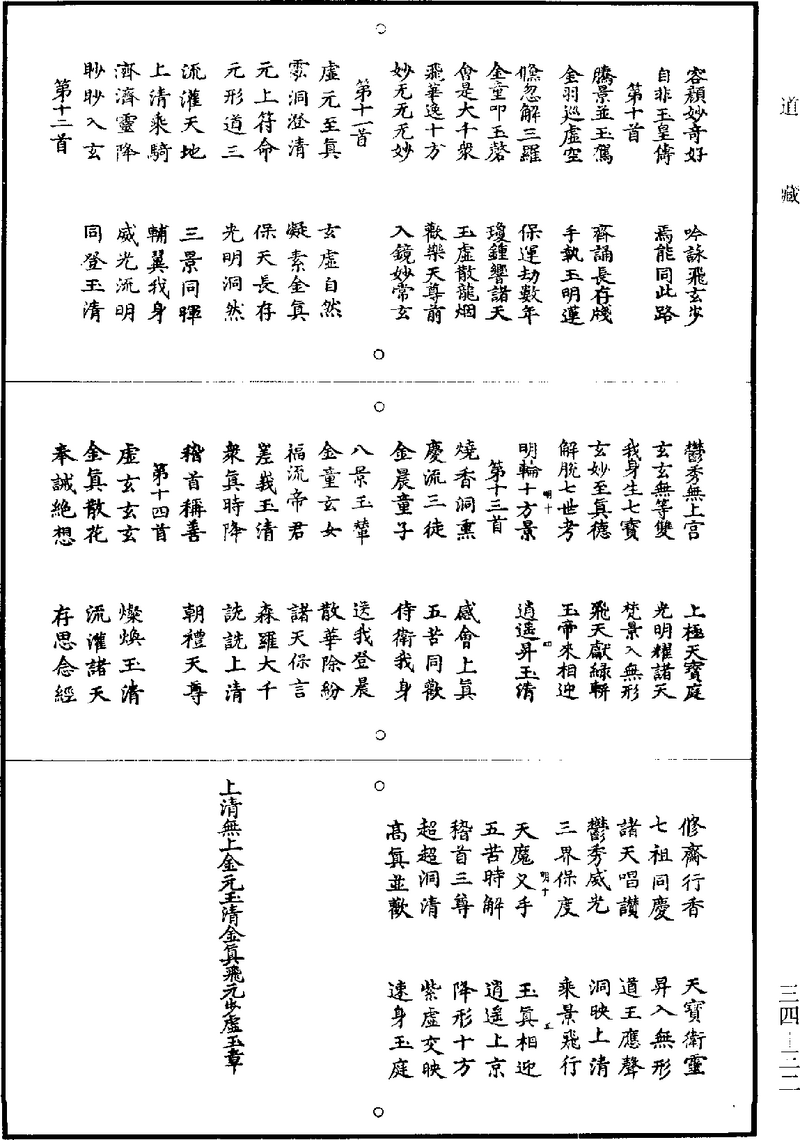 道藏
容顏妙奇好　吟詠飛玄步
自非玉皇儔　焉能同此路
第十首
騰景並玉駕　齊誦長存牋
金羽巡虛空　手執玉明蓮
儵忽解三羅　保運劫數年
金童叩玉磬　瓊鍾響諸天
會是大千衆　玉虛散龍烟
飛華逸十方　歡樂天尊前
妙无无无妙　入鏡妙常玄
第十一首
虛元至眞　玄虛自然
雲洞澄清　凝素金眞
元上符命　保天長存
元形道三　光明洞然
流灌天地　三景同暉
上清乘騎　輔翼我身
濟濟靈降　威光流明
眇眇入玄　同登玉清
第十二首
鬱秀無上宮　上極天寶庭
玄玄無等雙　光明耀諸天
我身生七寶　梵景入無形
玄妙至眞德　飛天獻綠軿
解脫七世考　玉帝來相迎
明十　四
明輪十方景　逍遙昇玉清
第十三首
燒香洞熏　感會上眞
慶流三徒　五苦同歡
金晨童子　侍衛我身
八景玉輦　送我登晨
金童玄女　散華除紛
福流帝君　諸天保言
差峩玉清　森羅大千
衆眞時降　詵詵上清
稽首稱善　朝禮天尊
第十四首
虛玄玄玄　燦煥玉清
金眞散花　流灌諸天
奉誠絕想　存思念經
修齋行香　天寶衛靈
七祖同慶　昇入無形
諸天唱讚　道王應聲
鬱秀威光　洞映上清
三界保度　乘景飛行
明十　五
天魔叉手　玉眞相迎
五苦時解　逍遙上京
稽首三尊　降形十方
超超洞清　紫虛交映
高眞並歡　速身玉庭
上清無上金元玉清金眞飛元步虛玉章
三四—三二